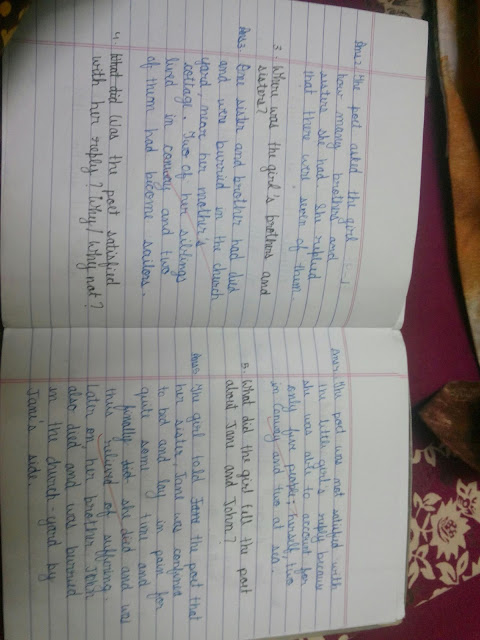 Ans:- The poet asked the girl
how many brothers and
sisters she had. She replied
that there were seven of them
3. Where was the girl's brothers and
sisters?
Ans:- One sister and brother had died
and were burried in the church
yard, near her mother's
cottage. Two of her siblings
lived in conway and two
of them had become sailors.
4. What did Was the poet satisfied
with her reply? Why/Why not?
Ans:- The poet was not satisfied with
the little girl's reply because
she was able to account for
only four people; herself, two
in conway and two at sea.
5. What did the girl tell the poet
about Jane and John?
Ans:- The girl told Jane the poet that
her sister, Jane was confined
to bed and lay in pain for
quite some time and
finally did she died and was
thus relieved of suffering.
Later on her brother John
also died and was burried
in the church-yard by
Jane's side.